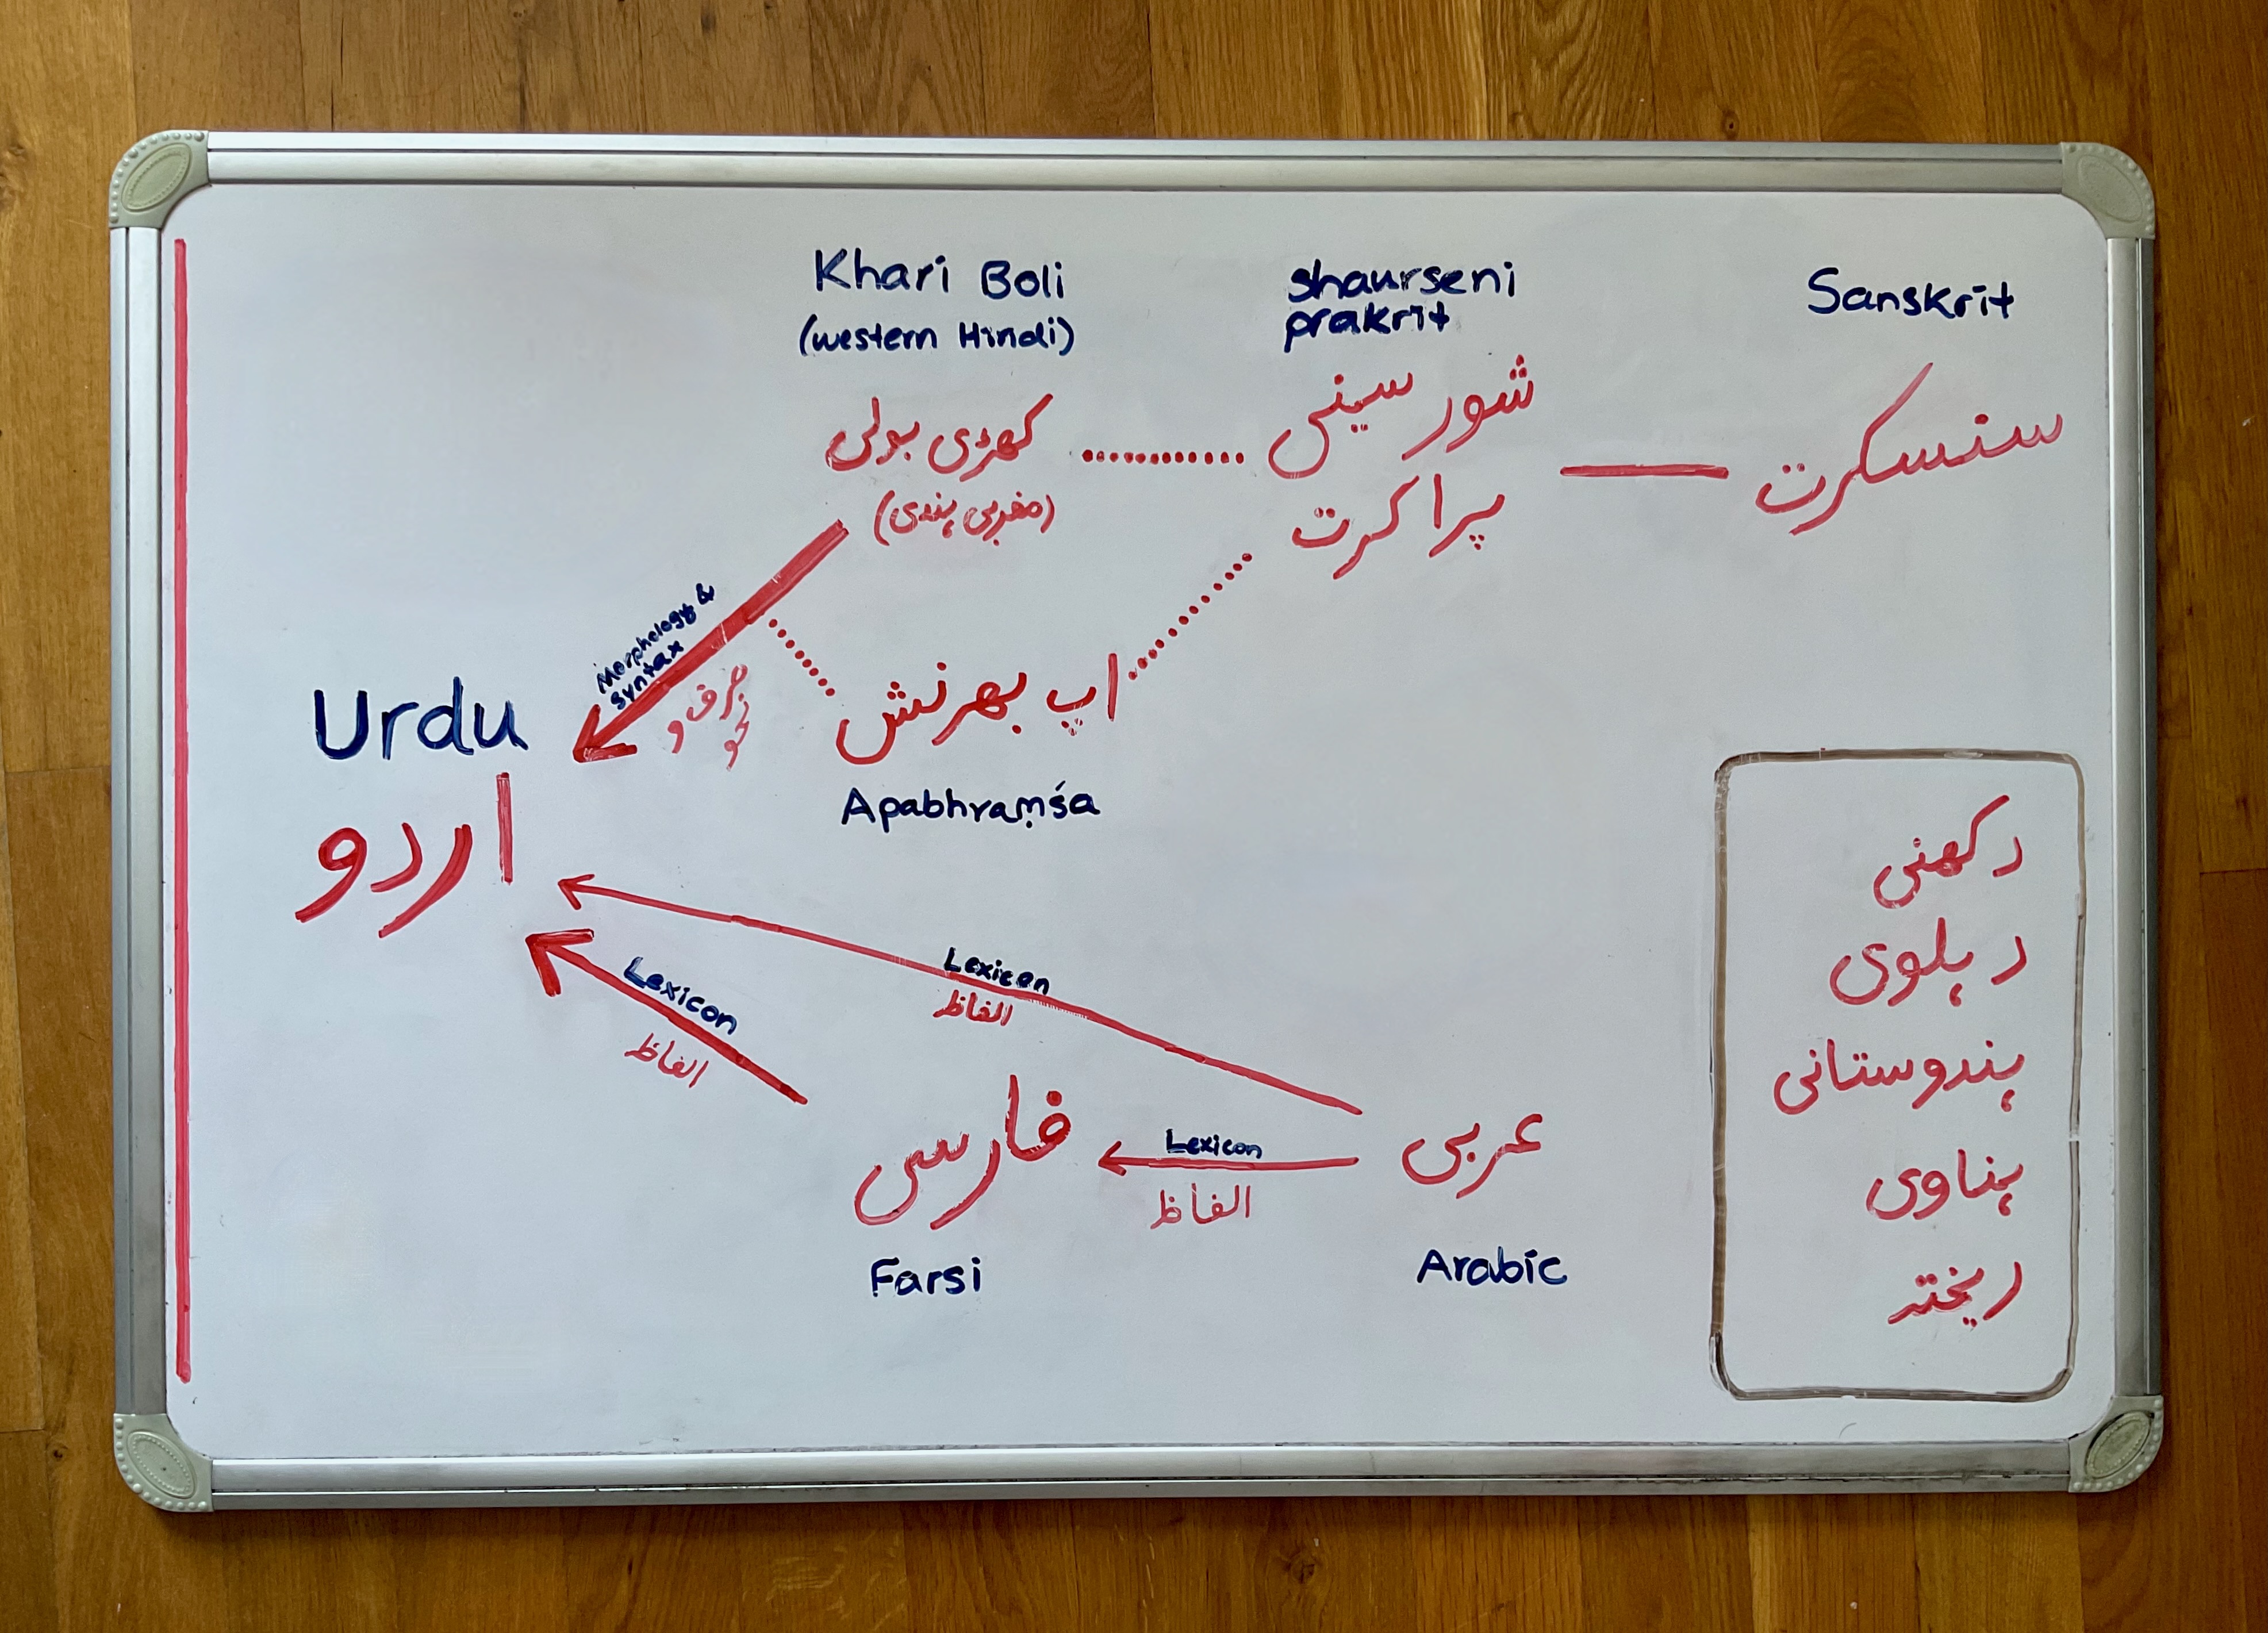 Khari Boli
(western Hindi)
کھڑی بولی
(مغربی ہندی)
shaurseni
prakrit
شور سینی
پراکرت
Sanskrit
سنسکرت
Morphology &
Syntax
صرف و
نحو
Urdu
اردو
اپ بھرنش
Apabhraṃśa
Lexicon
الفاظ
Lexicon
الفاظ
فارسی
Farsi
Lexicon
الفاظ
عربی
Arabic
دکھنی
دہلوی
ہندوستانی
ہناوی
ریختہ